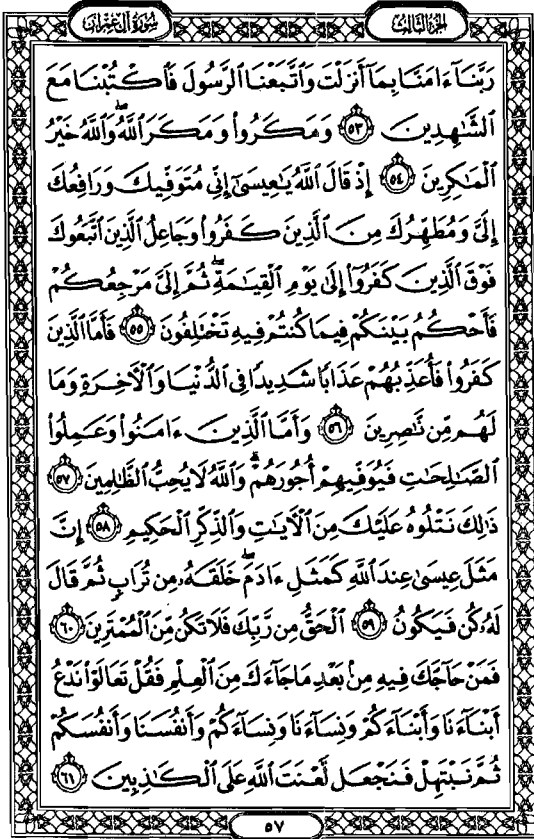 سُورَةُ آلِ عِمْرَانَ
الجزء الثالث
رَبَّنَآ ءَامَنَّا بِمَآ أَنزَلْتَ وَٱتَّبَعْنَا ٱلرَّسُولَ فَٱكْتُبْنَا مَعَ
ٱلشَّٰهِدِينَ ٥٣ وَمَكَرُوا۟ وَمَكَرَ ٱللَّهُ ۖ وَٱللَّهُ خَيْرُ
ٱلْمَٰكِرِينَ ٥٤ إِذْ قَالَ ٱللَّهُ يَٰعِيسَىٰٓ إِنِّى مُتَوَفِّيكَ وَرَافِعُكَ
إِلَىَّ وَمُطَهِّرُكَ مِنَ ٱلَّذِينَ كَفَرُوا۟ وَجَاعِلُ ٱلَّذِينَ ٱتَّبَعُوكَ
فَوْقَ ٱلَّذِينَ كَفَرُوٓا۟ إِلَىٰ يَوْمِ ٱلْقِيَٰمَةِ ۖ ثُمَّ إِلَىَّ مَرْجِعُكُمْ
فَأَحْكُمُ بَيْنَكُمْ فِيمَا كُنتُمْ فِيهِ تَخْتَلِفُونَ ٥٥ فَأَمَّا ٱلَّذِينَ
كَفَرُوا۟ فَأُعَذِّبُهُمْ عَذَابًا شَدِيدًا فِى ٱلدُّنْيَا وَٱلْءَاخِرَةِ وَمَا
لَهُم مِّن نَّٰصِرِينَ ٥٦ وَأَمَّا ٱلَّذِينَ ءَامَنُوا۟ وَعَمِلُوا۟
ٱلصَّٰلِحَٰتِ فَيُوَفِّيهِمْ أُجُورَهُمْ ۗ وَٱللَّهُ لَا يُحِبُّ ٱلظَّٰلِمِينَ ٥٧
ذَٰلِكَ نَتْلُوهُ عَلَيْكَ مِنَ ٱلْءَايَٰتِ وَٱلذِّكْرِ ٱلْحَكِيمِ ٥٨ إِنَّ
مَثَلَ عِيسَىٰ عِندَ ٱللَّهِ كَمَثَلِ ءَادَمَ ۖ خَلَقَهُۥ مِن تُرَابٍ ثُمَّ قَالَ
لَهُۥ كُن فَيَكُونُ ٥٩ ٱلْحَقُّ مِن رَّبِّكَ فَلَا تَكُن مِّنَ ٱلْمُمْتَرِينَ ٦٠
فَمَنْ حَآجَّكَ فِيهِ مِنۢ بَعْدِ مَا جَآءَكَ مِنَ ٱلْعِلْمِ فَقُلْ تَعَالَوْا۟ نَدْعُ
أَبْنَآءَنَا وَأَبْنَآءَكُمْ وَنِسَآءَنَا وَنِسَآءَكُمْ وَأَنفُسَنَا وَأَنفُسَكُمْ
ثُمَّ نَبْتَهِلْ فَنَجْعَل لَّعْنَتَ ٱللَّهِ عَلَى ٱلْكَٰذِبِينَ ٦١
٥٧